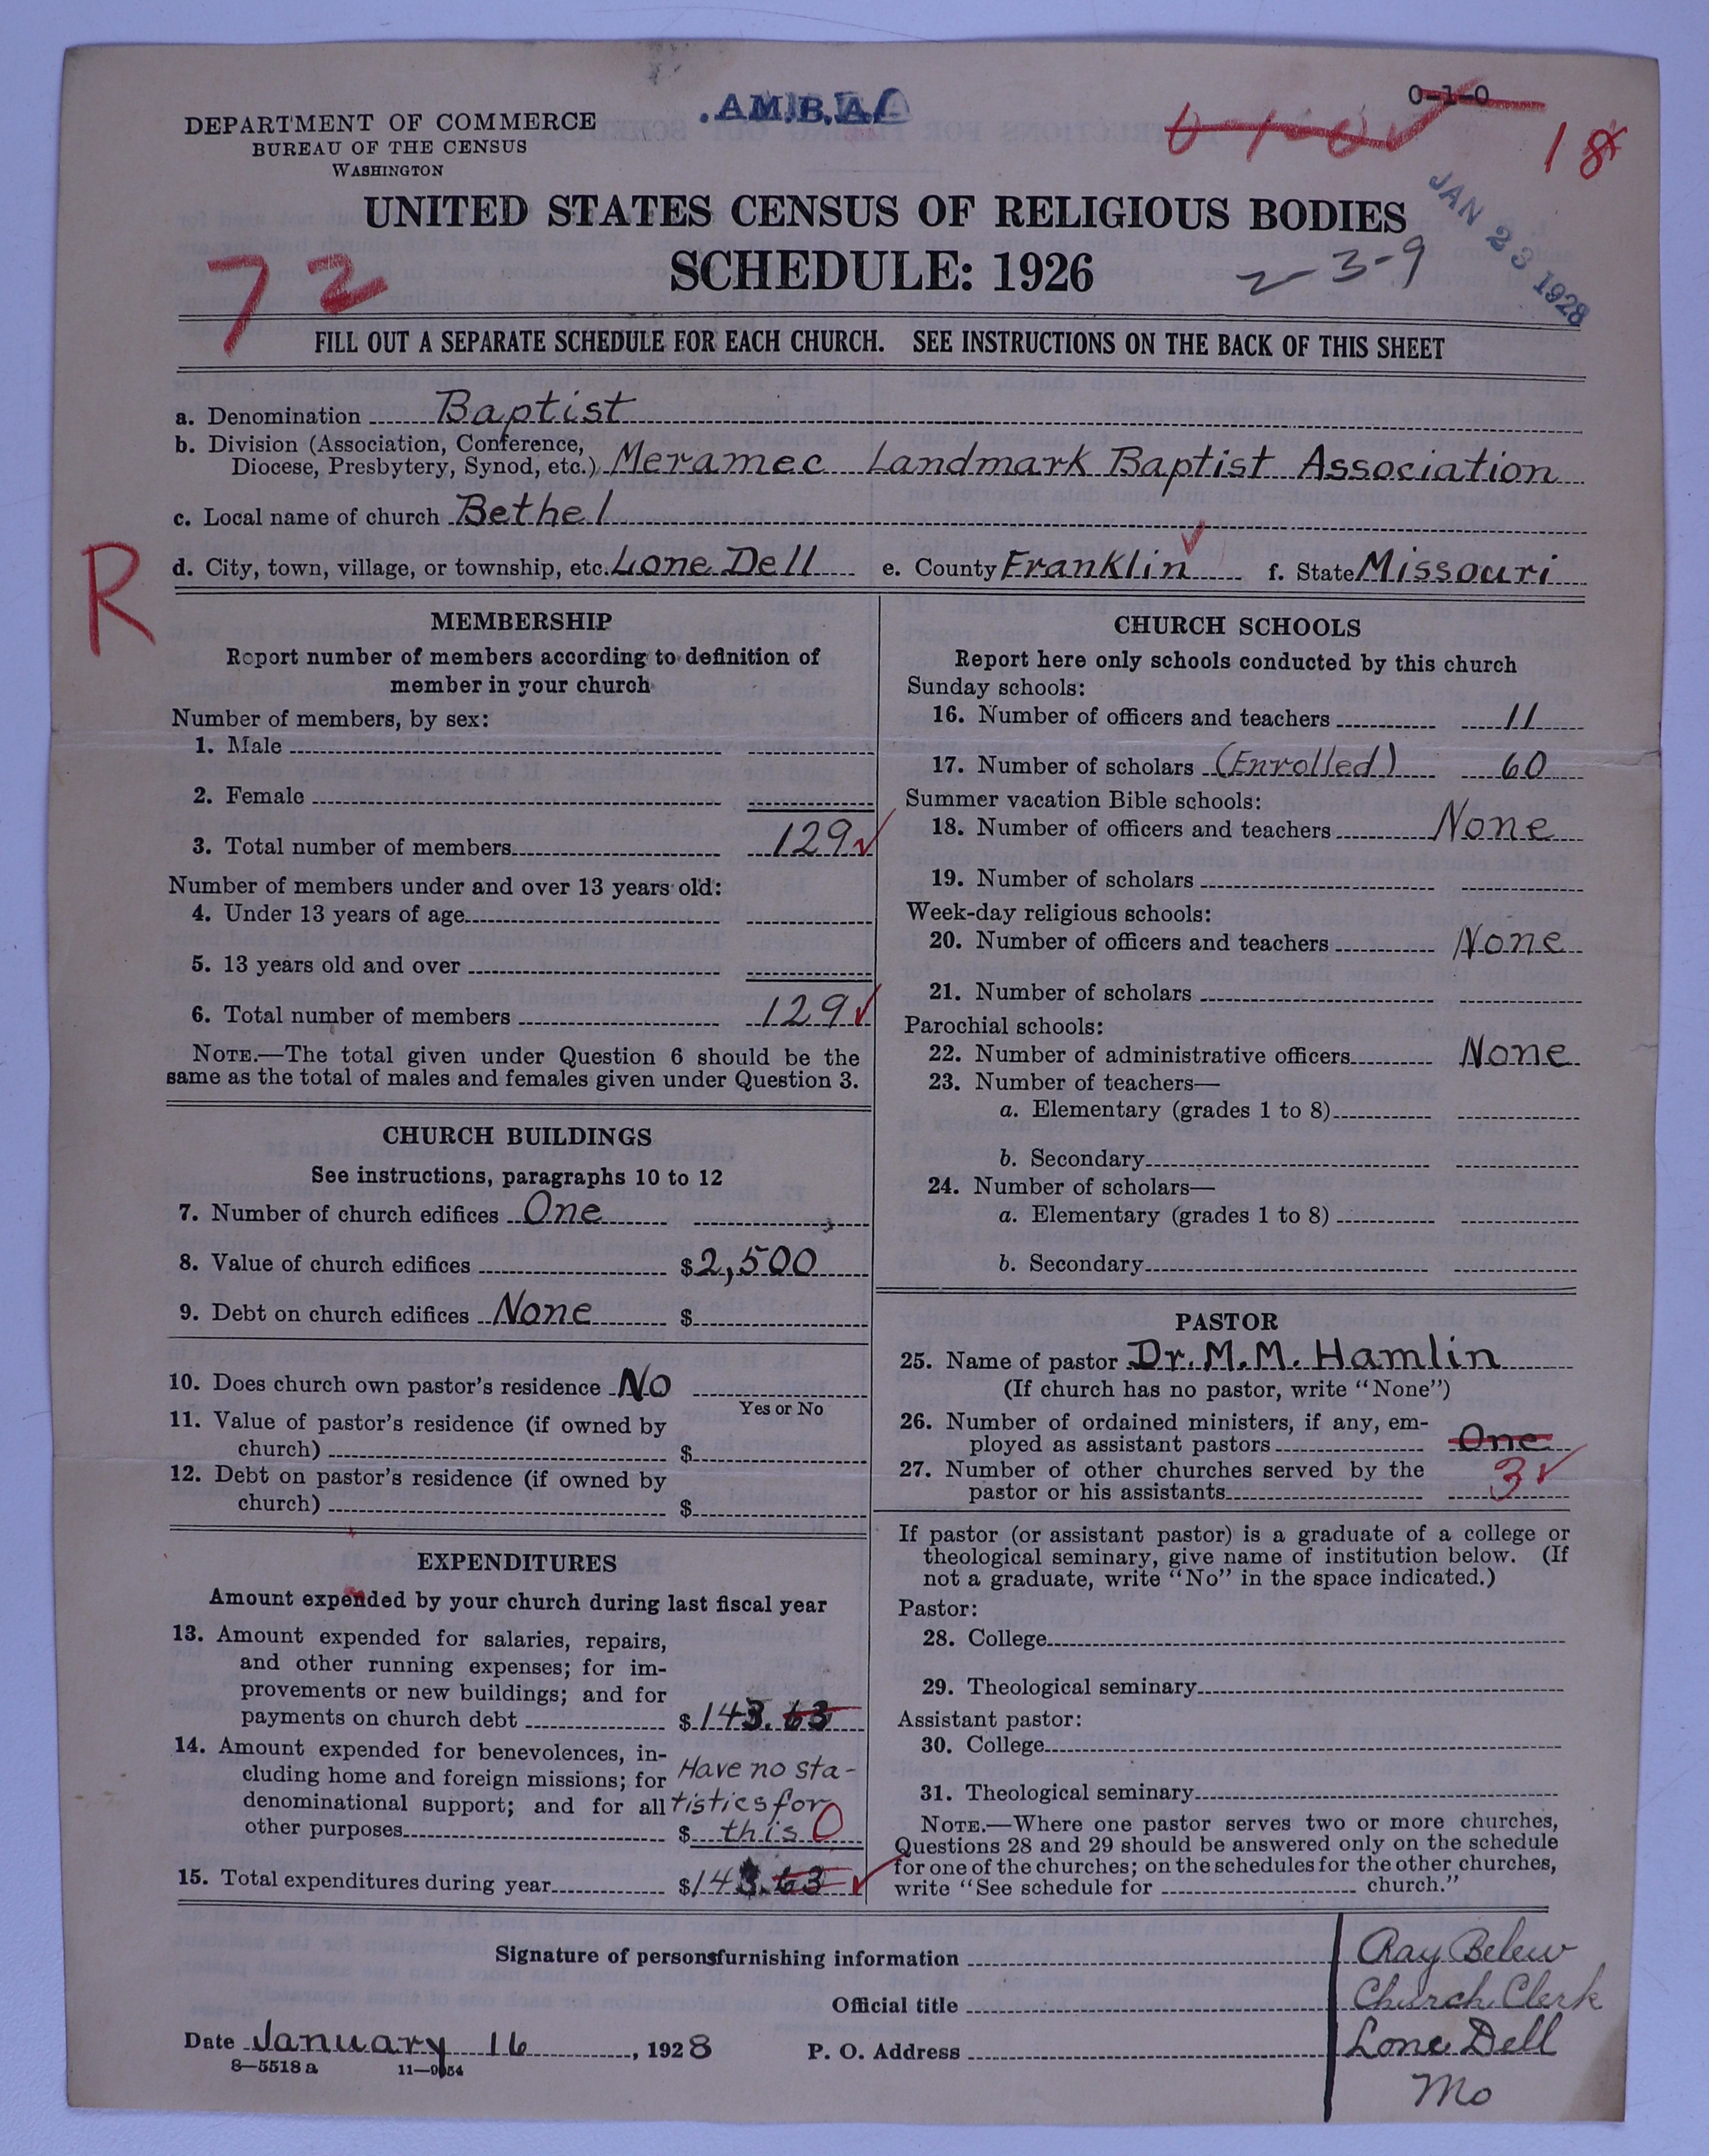 .AM.B.A.
0-1-0
0-1-0
18
DEPARTMENT OF COMMERCE
BUREAU OF THE CENSUS
WASHINGTON
UNITED STATES CENSUS OF RELIGIOUS BODIES
SCHEDULE: 1926
72
2-3-9
JAN 23 1928
FILL OUT A SEPARATE SCHEDULE FOR EACH CHURCH. SEE INSTRUCTIONS ON THE BACK OF THIS SHEET
a. Denomination Baptist
b. Division (Association, Conference,
Diocese, Presbytery, Synod, etc.) Meramec Landmark Baptist Association
c. Local name of church Bethel
R
d. City, town, village, or township, etc. Lone Dell e. County Franklin f. State Missouri
MEMBERSHIP
Report number of members according to definition of
member in your church
Number of members, by sex:
1. Male
2. Female
3. Total number of members 129
Number of members under and over 13 years old:
4. Under 13 years of age
5. 13 years old and over
6. Total number of members 129
NOTE.—The total given under Question 6 should be the
same as the total of males and females given under Question 3.
CHURCH BUILDINGS
See instructions, paragraphs 10 to 12
7. Number of church edifices One
8. Value of church edifices $2,500
9. Debt on church edifices None $
10. Does church own pastor's residence No
Yes or No
11. Value of pastor's residence (if owned by
church) $
12. Debt on pastor's residence (if owned by
church) $
EXPENDITURES
Amount expended by your church during last fiscal year
13. Amount expended for salaries, repairs,
and other running expenses; for im-
provements or new buildings; and for
payments on church debt $143.63
14. Amount expended for benevolences, in-
cluding home and foreign missions; for Have no sta-
denominational support; and for all tistics for
other purposes $ this 0
15. Total expenditures during year $143.63
CHURCH SCHOOLS
Report here only schools conducted by this church
Sunday schools:
16. Number of officers and teachers 11
17. Number of scholars (Enrolled) 60
Summer vacation Bible schools:
18. Number of officers and teachers None
19. Number of scholars
Week-day religious schools:
20. Number of officers and teachers None
21. Number of scholars
Parochial schools:
22. Number of administrative officers None
23. Number of teachers—
a. Elementary (grades 1 to 8)
b. Secondary
24. Number of scholars—
a. Elementary (grades 1 to 8)
b. Secondary
PASTOR
25. Name of pastor Dr. M. M. Hamlin
(If church has no pastor, write "None")
26. Number of ordained ministers, if any, em-
ployed as assistant pastors One
27. Number of other churches served by the
pastor or his assistants 3
If pastor (or assistant pastor) is a graduate of a college or
theological seminary, give name of institution below. (If
not a graduate, write "No" in the space indicated.)
Pastor:
28. College
29. Theological seminary
Assistant pastor:
30. College
31. Theological seminary
NOTE.—Where one pastor serves two or more churches,
Questions 28 and 29 should be answered only on the schedule
for one of the churches; on the schedules for the other churches,
write "See schedule for church."
Signature of persons furnishing information Ray Belew
Official title Church Clerk
Date January 16, 1928 P. O. Address Lone Dell
Mo
8—5518 a 11—9054